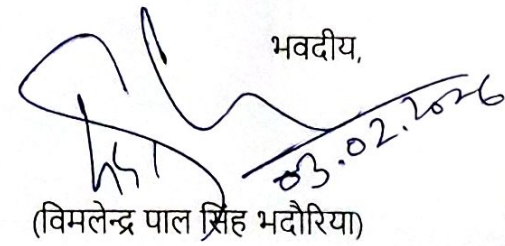 भवदीय,
03.02.2026
(विमलेन्द्र पाल सिंह भदौरिया)